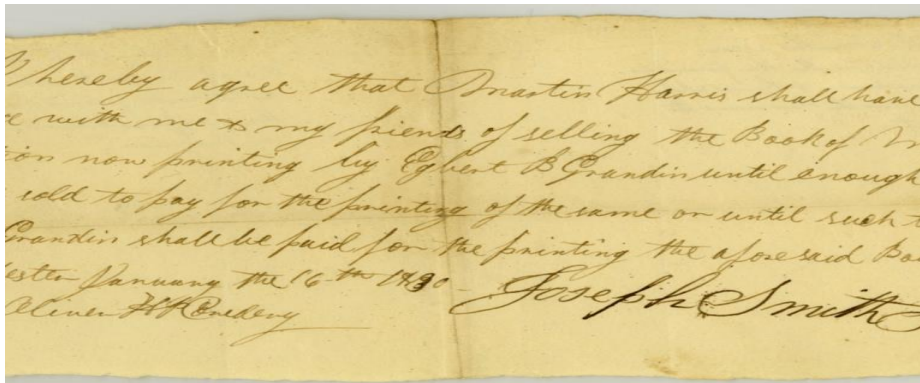 I hereby agree that Martin Harris shall have
with me & my friends of selling the Book of
now printing by Egbert B Grandin until enough
sold to pay for the printing of the same or until such
Grandin shall be paid for the printing the aforesaid
January the 16th 1830
Oliver H P Cowdery Joseph Smith